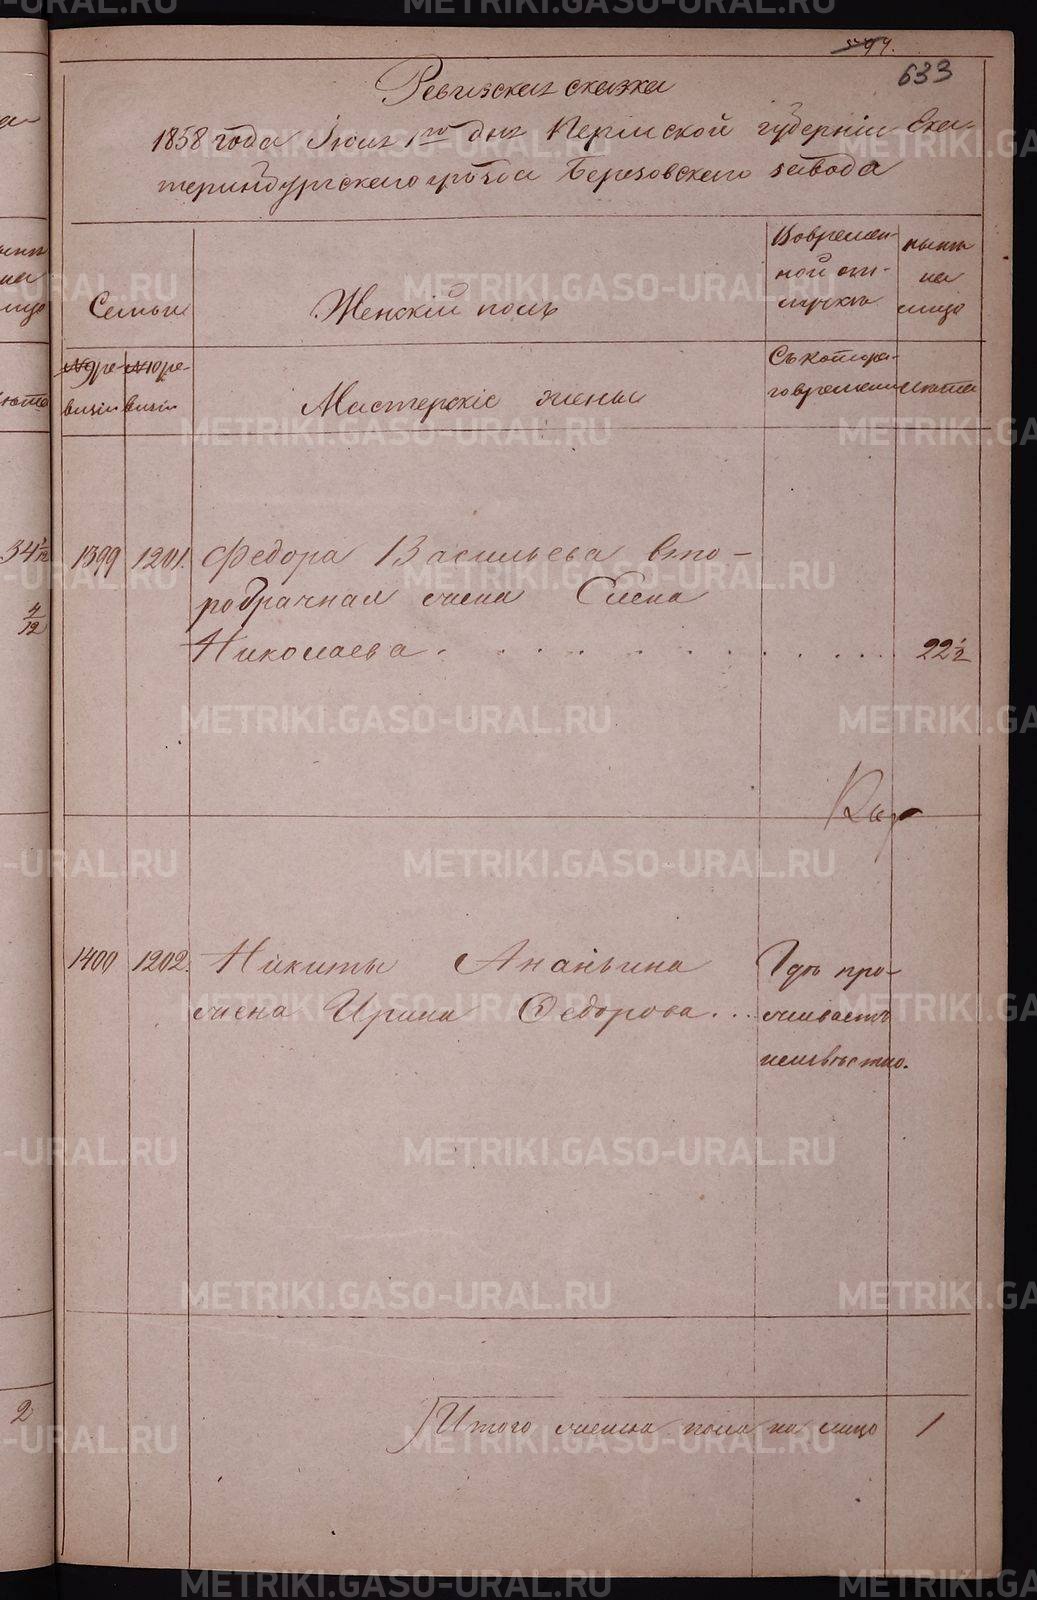 594.
633
Ревизская сказка
1858 года Июля 1го дня Пермской губернии Ека-
теринбургского уезда Березовского завода
Семьи
Женскій полъ
Во времен-
ной от-
лучкѣ
нынѣ
на
лицо
№ 9 ре-
визіи
№ 10 ре-
визіи
Мастерскіе жены
Съ котора-
го времени
Лѣта
34
1399
1201.
Федора Васильева вто-
робрачная жена Елена
Николаева
22 1/2
4/12
1400
1202.
Никиты Ананьина
жена Ирина Федорова
Гдѣ про-
живаетъ
неизвѣстно.
2
Итого женска пола на лицо
1
METRIKI.GASO-URAL.RU